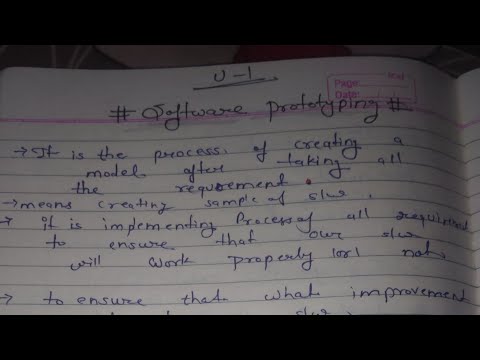 U-1
Page:
Date:
# Software Prototyping #
→ It is the process of creating a
model after taking all
the requirement.
→ means creating sample of s/w.
→ it is implementing Process of all required
to ensure that our s/w
will work properly or not.
→ to ensure that what improvement
s/w.